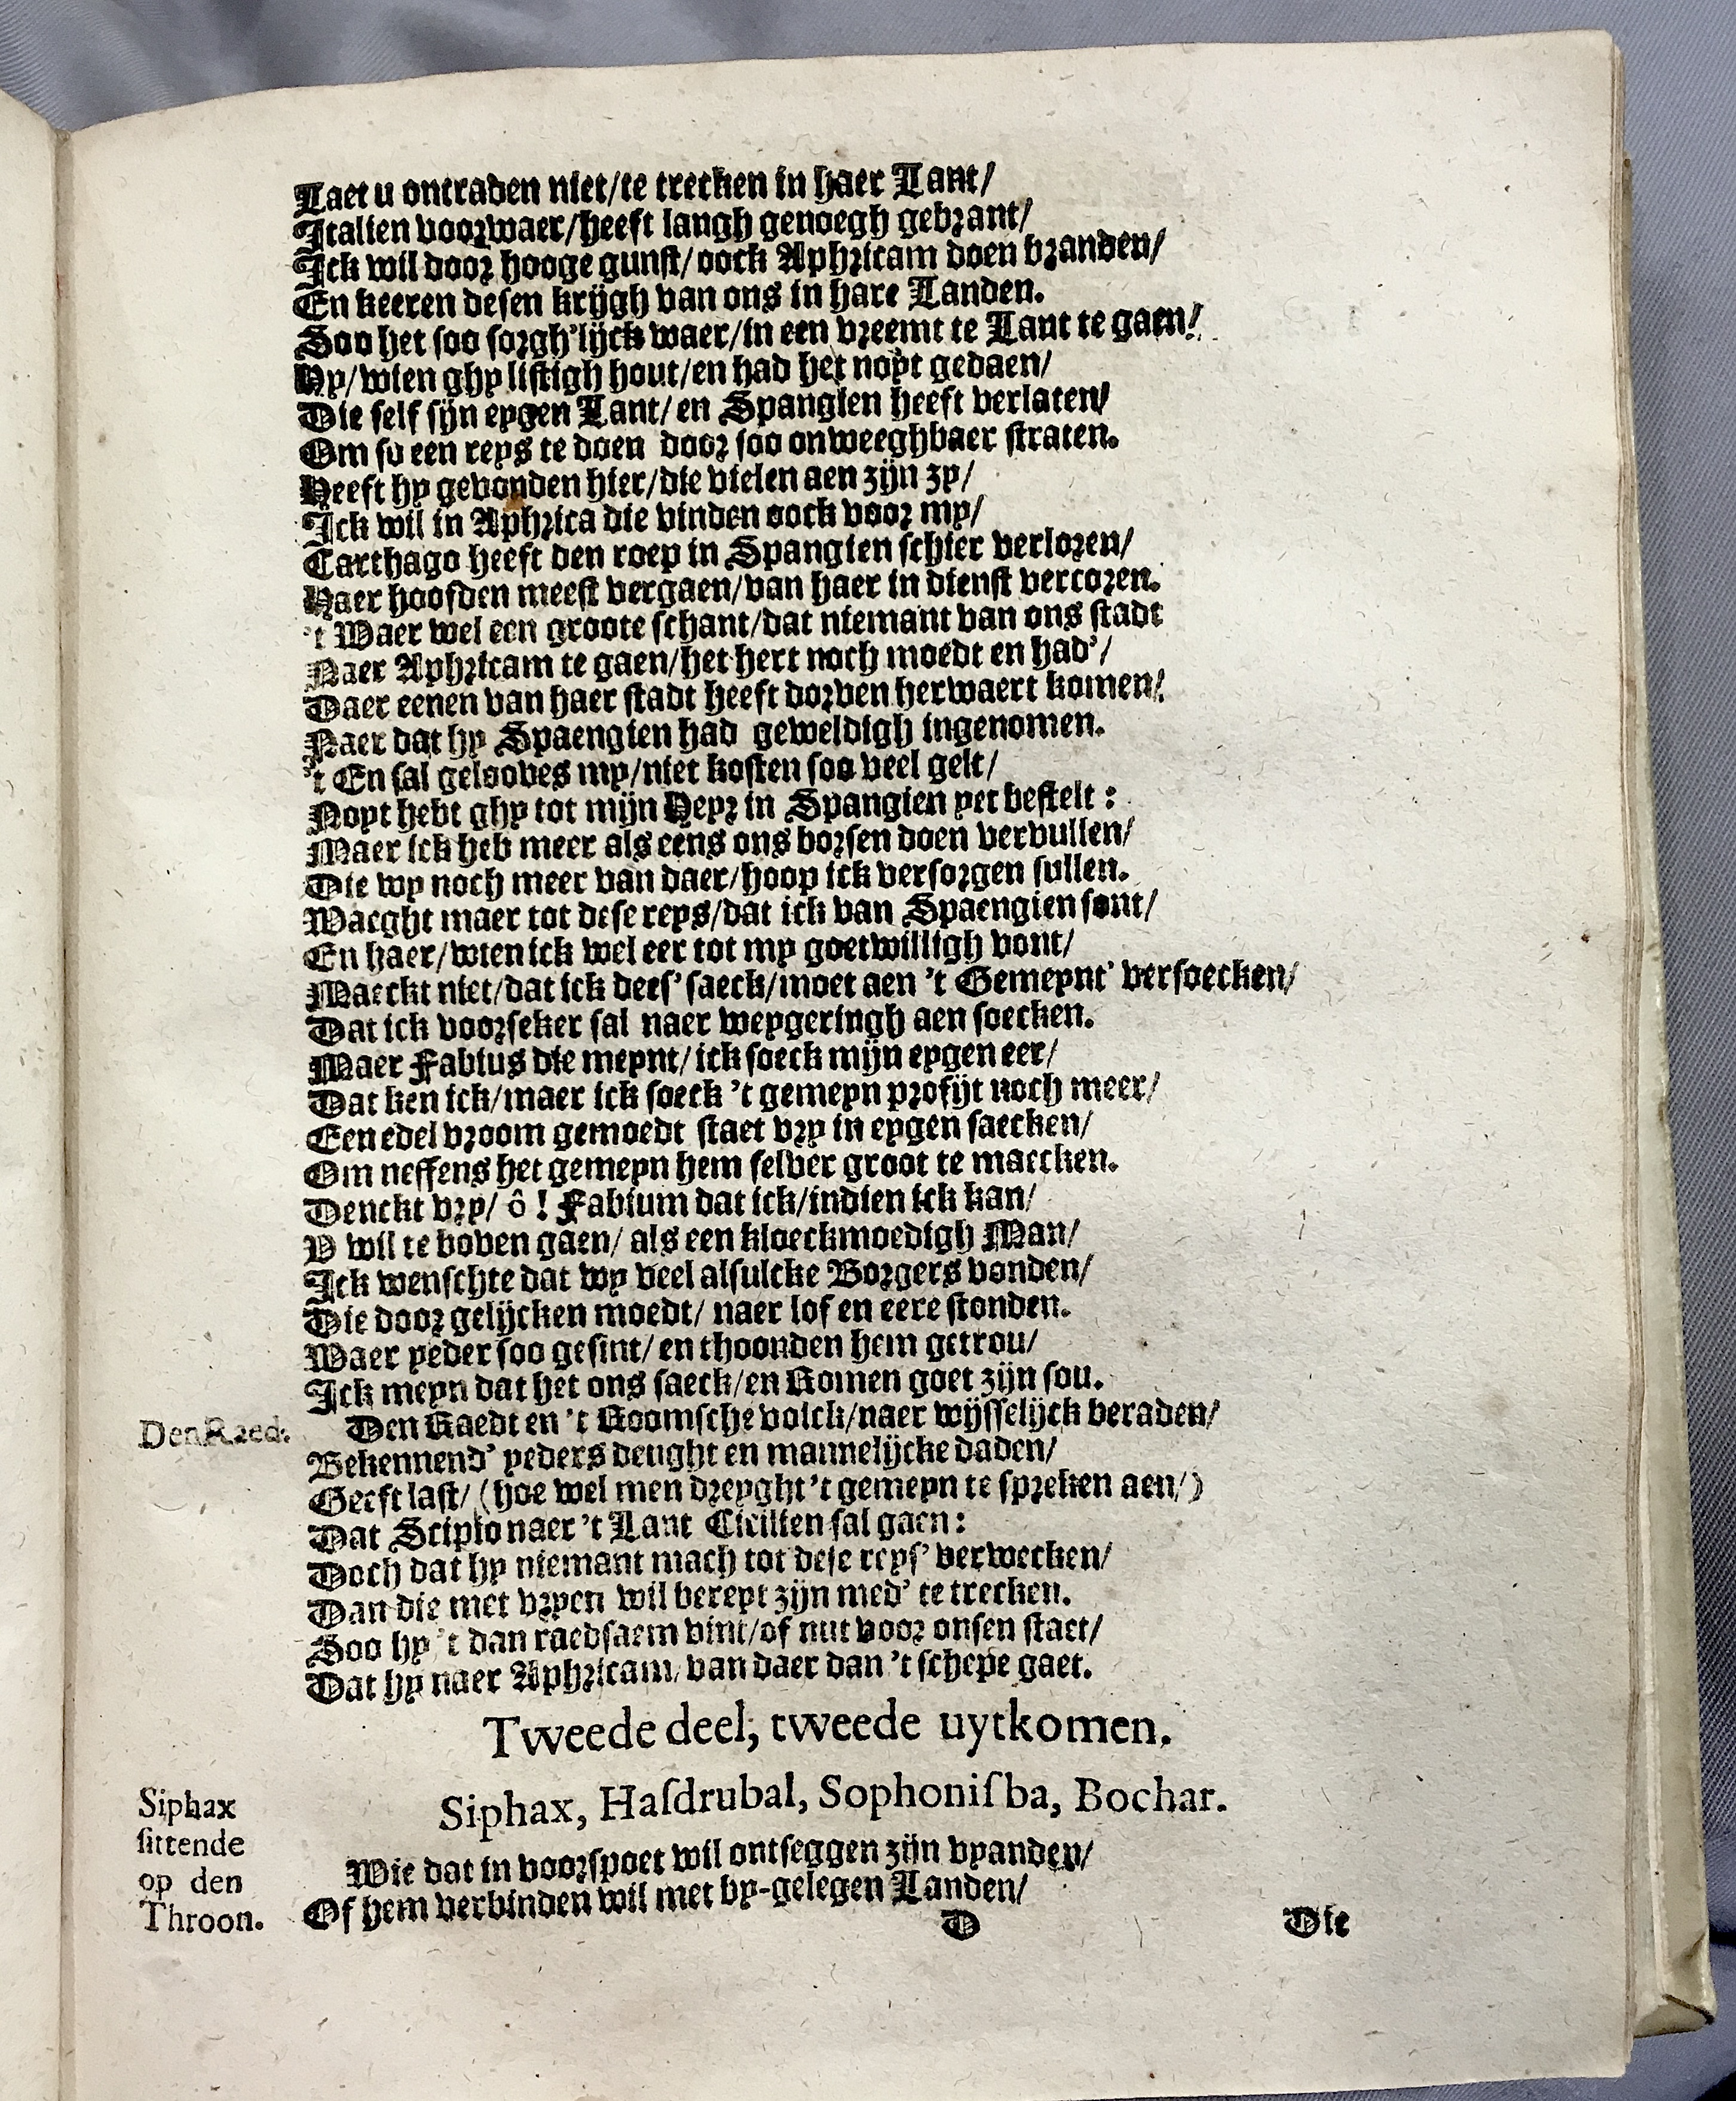 Laet u ontraden niet/te trecken in haer Lant/
Italien voorwaer/heeft langh genoegh gebrant/
Ick wil door hooge gunst/oock Aphricam doen branden/
En keeren desen krijgh van ons in hare Landen.
Soo het soo sorgh'lijck waer/in een vreemt te Lant te gaen/
Hy/wien ghy listigh hout/en had het noyt gedaen/
Die self sijn eygen Lant/en Spangien heeft verlaten/
Om so een reys te doen door soo onweeghbaer straten.
Heeft hy gevonden hier/die vielen aen zijn zy/
Ick wil in Aphrica die vinden oock voor my/
Carthago heeft den roep in Spangien schier verloren/
Haer hoofden meest vergaen/van haer in dienst vercoren.
't Waer wel een groote schant/dat niemant van ons stadt
Naer Aphricam te gaen/het hert noch moedt en had'/
Daer eenen van haer stadt heeft dorven herwaert komen/
Naer dat hy Spaengien had geweldigh ingenomen.
't En sal gelooves my/niet kosten soo veel gelt/
Noyt hebt ghy tot mijn Heyr in Spangien yet bestelt:
Maer ick heb meer als eens ons borsen doen vervullen/
Die wy noch meer van daer/hoop ick versorgen sullen.
Waeght maer tot dese reys/dat ick van Spaengien sont/
En haer/wien ick wel eer tot my goetwilligh vont/
Maeckt niet/dat ick dees' saeck/moet aen 't Gemeynt' versoecken/
Dat ick voorseker sal naer weygeringh aen soecken.
Maer Fabius die meynt/ick soeck mijn eygen eer/
Dat ken ick/maer ick soeck 't gemeyn profijt noch meer/
Een edel vroom gemoedt staet vry in eygen saecken/
Om neffens het gemeyn hem selver groot te maecken.
Denckt vry/ ô! Fabium dat ick/indien ick kan/
V wil te boven gaen/ als een kloeckmoedigh Man/
Ick wenschte dat wy veel alsulcke Borgers vonden/
Die door gelijcken moedt/ naer lof en eere stonden.
Waer yeder soo gesint/ en thoonden hem getrou/
Ick meyn dat het ons saeck/en Romen goet zijn sou.
Den Raed. Den Raedt en 't Roomsche volck/naer wijsselijck beraden/
Bekennend' yeders deught en mannelijcke daden/
Geeft last/ (hoe wel men dreyght 't gemeyn te spreken aen/)
Dat Scipio naer 't Lant Cicilien sal gaen:
Doch dat hy niemant mach tot dese reys' verwecken/
Dan die met vryen wil bereyt zijn med' te trecken.
Soo hy 't dan raedsaem vint/of nut voor onsen staet/
Dat hy naer Aphricam/van daer dan 't schepe gaet.
Tweede deel, tweede uytkomen.
Siphax, Hasdrubal, Sophonisba, Bochar.
Siphax
sittende
op den
Throon.
Wie dat in voorspoet wil ontseggen zijn vyanden/
Of hem verbinden wil met by-gelegen Landen/
D Die